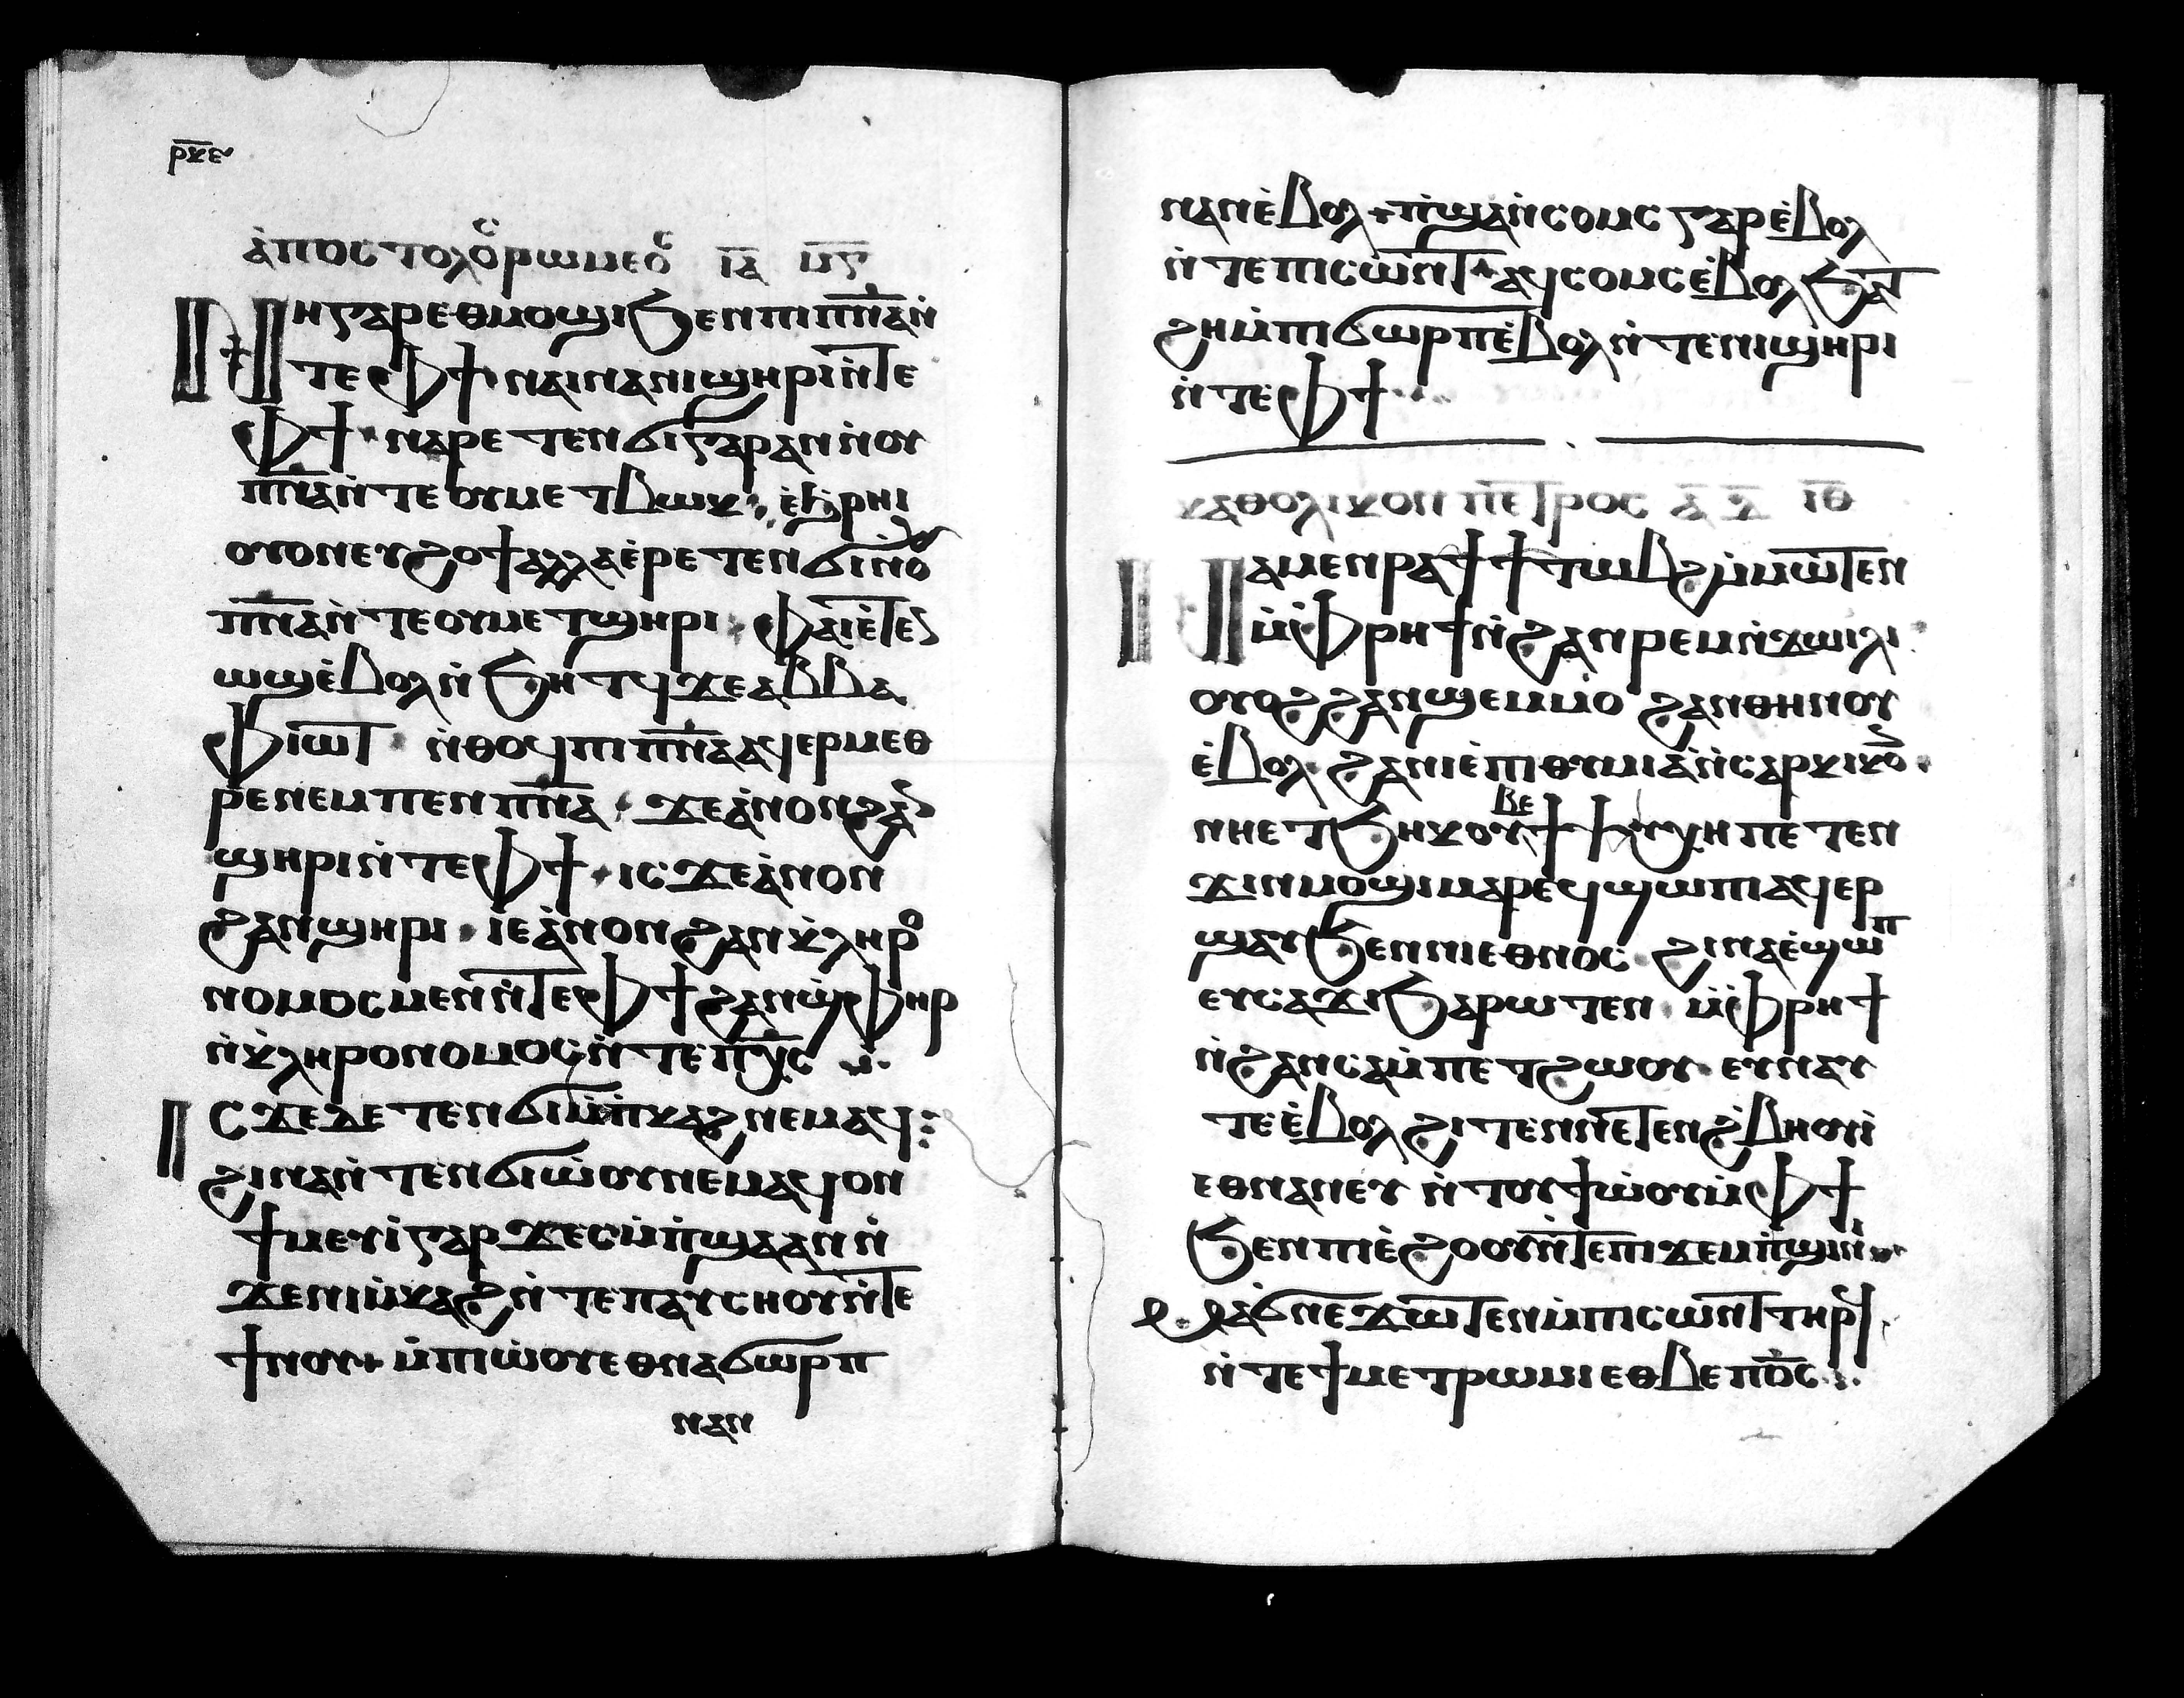 ⲣ̅ⲕ̅ⲉ
ⲁ̀ⲡⲟⲥⲧⲟⲗⲟⲥ ⲣⲱⲙⲉⲟⲥ ⲓ̅ⲁ̅ ⲙ̅ⲋ̅
ⲛⲏ ⲅⲁⲣ ⲉⲑⲙⲟϣⲓ ϧⲉⲛ ⲡⲓⲡ̅ⲛ̅ⲁ̅ ⲛ̀
ⲧⲉ ⲫϯ ⲛⲁⲓ ⲛⲁⲛⲓϣⲏⲣⲓ ⲛ̀ⲧⲉ
ⲫϯ ⲛⲁⲣⲉⲧⲉⲛϭⲓ ⲅⲁⲣ ⲁⲛ ⲛ̀ⲟⲩ
ⲡ̅ⲛ̅ⲁ̅ ⲛ̀ⲧⲉ ⲟⲩⲙⲉⲧⲃⲱⲕ ⲉ̀ϧⲣⲏⲓ
ⲟⲩⲟⲛⲉⲩϩⲟϯ ⲁⲗⲗⲁ ⲉ̀ⲣⲉⲧⲉⲛϭⲓ ⲛ̀ⲟⲩ
ⲡ̅ⲛ̅ⲁ̅ ⲛ̀ⲧⲉ ⲟⲩⲙⲉⲧϣⲏⲣⲓ ⲫⲁⲓ ⲉ̀ⲧⲉⲛ
ⲱϣ ⲉ̀ⲃⲟⲗ ⲛ̀ϧⲏⲧϥ ϫⲉ ⲁⲃⲃⲁ
ⲫⲓⲱⲧ ⲛ̀ⲑⲟϥ ⲡⲓⲡ̅ⲛ̅ⲁ̅ ⲁϥⲉⲣⲙⲉⲑ
ⲣⲉ ⲛⲉⲙ ⲡⲉⲛⲡ̅ⲛ̅ⲁ̅ ϫⲉ ⲁ̀ⲛⲟⲛ ϩⲁⲛ
ϣⲏⲣⲓ ⲛ̀ⲧⲉ ⲫϯ ⲓⲥϫⲉ ⲁ̀ⲛⲟⲛ
ϩⲁⲛϣⲏⲣⲓ ⲓⲉ ⲁ̀ⲛⲟⲛ ϩⲁⲛⲕ̀ⲗⲏⲣⲟ
ⲛⲟⲙⲟⲥ ⲙⲉⲛ ⲛ̀ⲧⲉ ⲫϯ ϩⲁⲛϣ̀ⲫⲏⲣ
ⲛ̀ⲕ̀ⲗⲏⲣⲟⲛⲟⲙⲟⲥ ⲛ̀ⲧⲉ ⲡⲭ̅ⲥ
ⲓⲥϫⲉ ϫⲉ ⲧⲉⲛϭⲓ ⲙ̀ⲡ̀ⲕⲁϩ ⲛⲉⲙⲁϥ
ϩⲓⲛⲁ ⲛ̀ⲧⲉⲛϭⲓⲱ̀ⲟⲩ ⲛⲉⲙⲁϥ ⲟⲛ
ϯⲙⲉⲩⲓ̀ ⲅⲁⲣ ϫⲉ ⲥⲙ̀ⲡ̀ϣⲁ ⲁⲛ ⲛ̀
ϫⲉ ⲛⲓⲙ̀ⲕⲁϩ ⲛ̀ⲧⲉ ⲡⲁⲓⲥⲏⲟⲩ ⲛ̀ⲧⲉ
ϯⲛⲟⲩ ⲙ̀ⲡⲓⲱ̀ⲟⲩ ⲉⲑⲛⲁϭⲱⲣⲡ
ⲛⲁⲛ
ⲛⲁⲛ ⲉ̀ⲃⲟⲗ ⲡ̀ϣⲁⲛⲥⲟⲙⲥ ⲅⲁⲣ ⲉ̀ⲃⲟⲗ
ⲛ̀ⲧⲉ ⲡⲓⲥⲱⲛⲧ ⲁϥⲥⲟⲙⲥ ⲉ̀ⲃⲟⲗ ϧⲁⲧ
ϩⲏ ⲙ̀ⲡⲓϭⲱⲣⲡ ⲉ̀ⲃⲟⲗ ⲛ̀ⲧⲉ ⲛⲓϣⲏⲣⲓ
ⲛ̀ⲧⲉ ⲫϯ
ⲕⲁⲑⲟⲗⲓⲕⲟⲛ ⲡⲉⲧⲣⲟⲥ ⲁ̅ ⲓ̅ⲑ̅
ⲛⲁⲙⲉⲛⲣⲁϯ ϯⲧⲱⲃϩ ⲙ̀ⲙⲱⲧⲉⲛ
ⲙ̀ⲫⲣⲏϯ ⲛ̀ϩⲁⲛⲣⲉⲙⲛ̀ϫⲱⲓⲗⲓ
ⲟⲩⲟϩ ϩⲁⲛϣⲉⲙⲙⲟ ϩⲁⲛⲑⲏⲛⲟⲩ
ⲉ̀ⲃⲟⲗ ϩⲁ ⲛⲓⲉ̀ⲡⲓⲑⲩⲙⲓⲁ ⲛ̀ⲥⲁⲣⲕⲓⲕⲟⲛ
ⲛⲏ ⲉⲧϧⲏⲕ ⲟⲩⲃⲉ ϯⲯⲩⲭⲏ ⲡⲉⲧⲉⲛ
ϫⲓⲛⲙⲟϣⲓ ⲙⲁⲣⲉϥϣⲱⲡⲓ ⲁϥⲉⲣ
ϣⲁⲩ ϧⲉⲛ ⲛⲓⲉⲑⲛⲟⲥ ϩⲓⲛⲁ ⲉ̀ϣⲱⲡ
ⲉⲩⲥⲁϫⲓ ϧⲁⲣⲱⲧⲉⲛ ⲙ̀ⲫⲣⲏϯ
ⲛ̀ϩⲁⲛⲥⲁⲙ̀ⲡⲉⲧϩⲱⲟⲩ ⲉⲩⲛⲁⲩ
ⲧⲉ ⲉ̀ⲃⲟⲗ ϩⲓⲧⲉⲛ ⲛⲉⲧⲉⲛϩ̀ⲃⲏⲟⲩⲓ̀
ⲉⲑⲛⲁⲛⲉⲩ ⲛ̀ⲧⲟⲩϯⲱ̀ⲟⲩ ⲙ̀ⲫϯ
ϧⲉⲛ ⲡⲓⲉ̀ϩⲟⲟⲩ ⲛ̀ⲧⲉ ⲡⲓϫⲉⲙⲡ̀ϣⲓⲛⲓ
ⲙⲁϭⲛⲉϫⲱⲧⲉⲛ ⲙ̀ⲡⲓⲥⲱⲛⲧ ⲧⲏⲣϥ
ⲛ̀ⲧⲉ ϯⲙⲉⲧⲣⲱⲙⲓ ⲉⲑⲃⲉ ⲡⲟ̅ⲥ